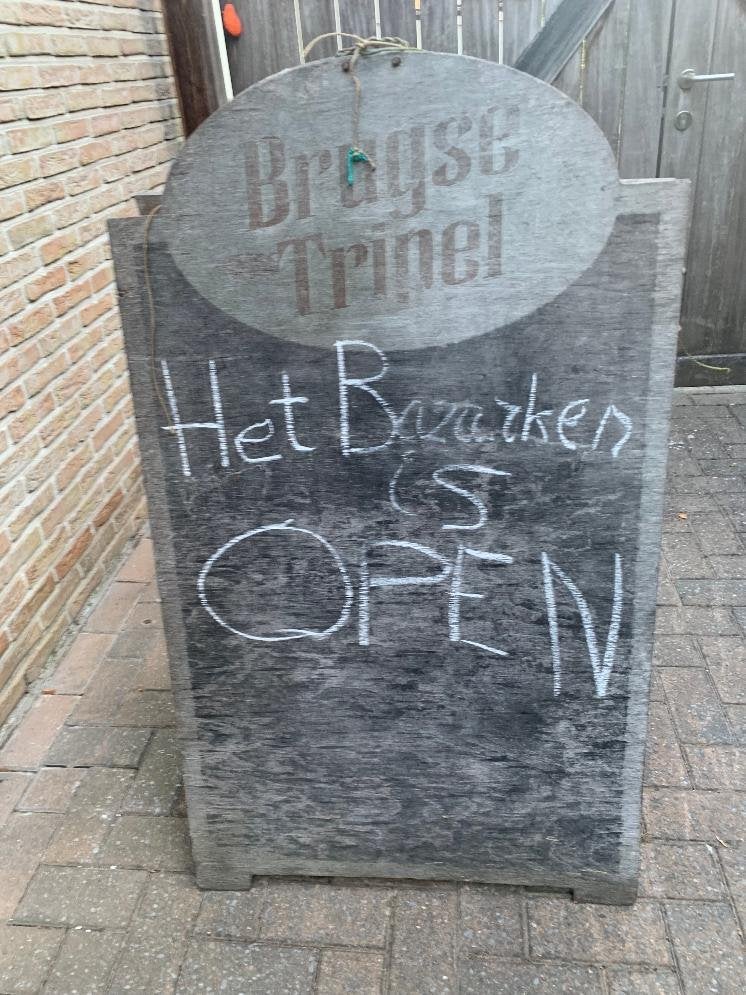 Brugse
Tripel
Het Bazarken
is
OPEN